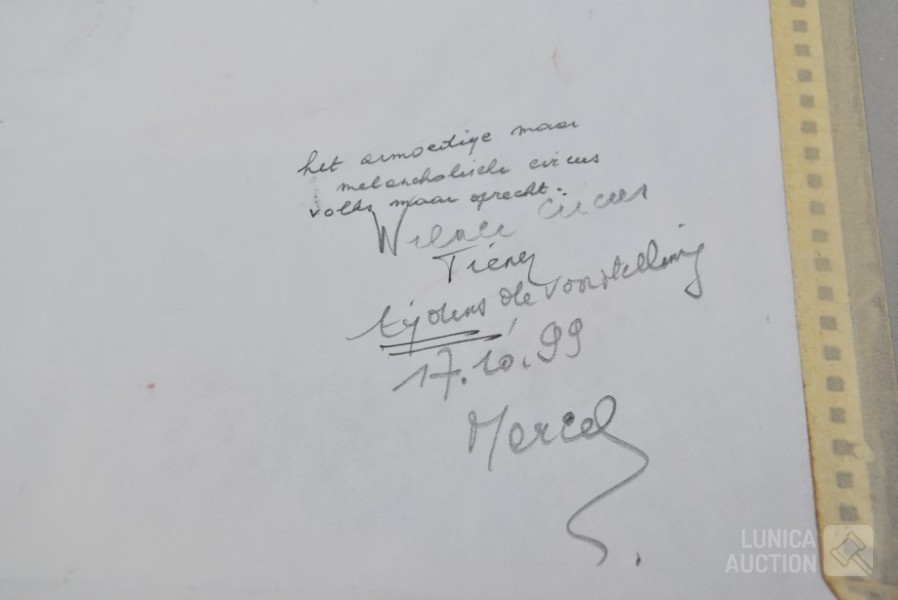 het armoedige maar
melancholische circus
volks maar oprecht.
circus
Tienen
tijdens de voorstelling
17.10.99
Marcel
LUNICA
AUCTION